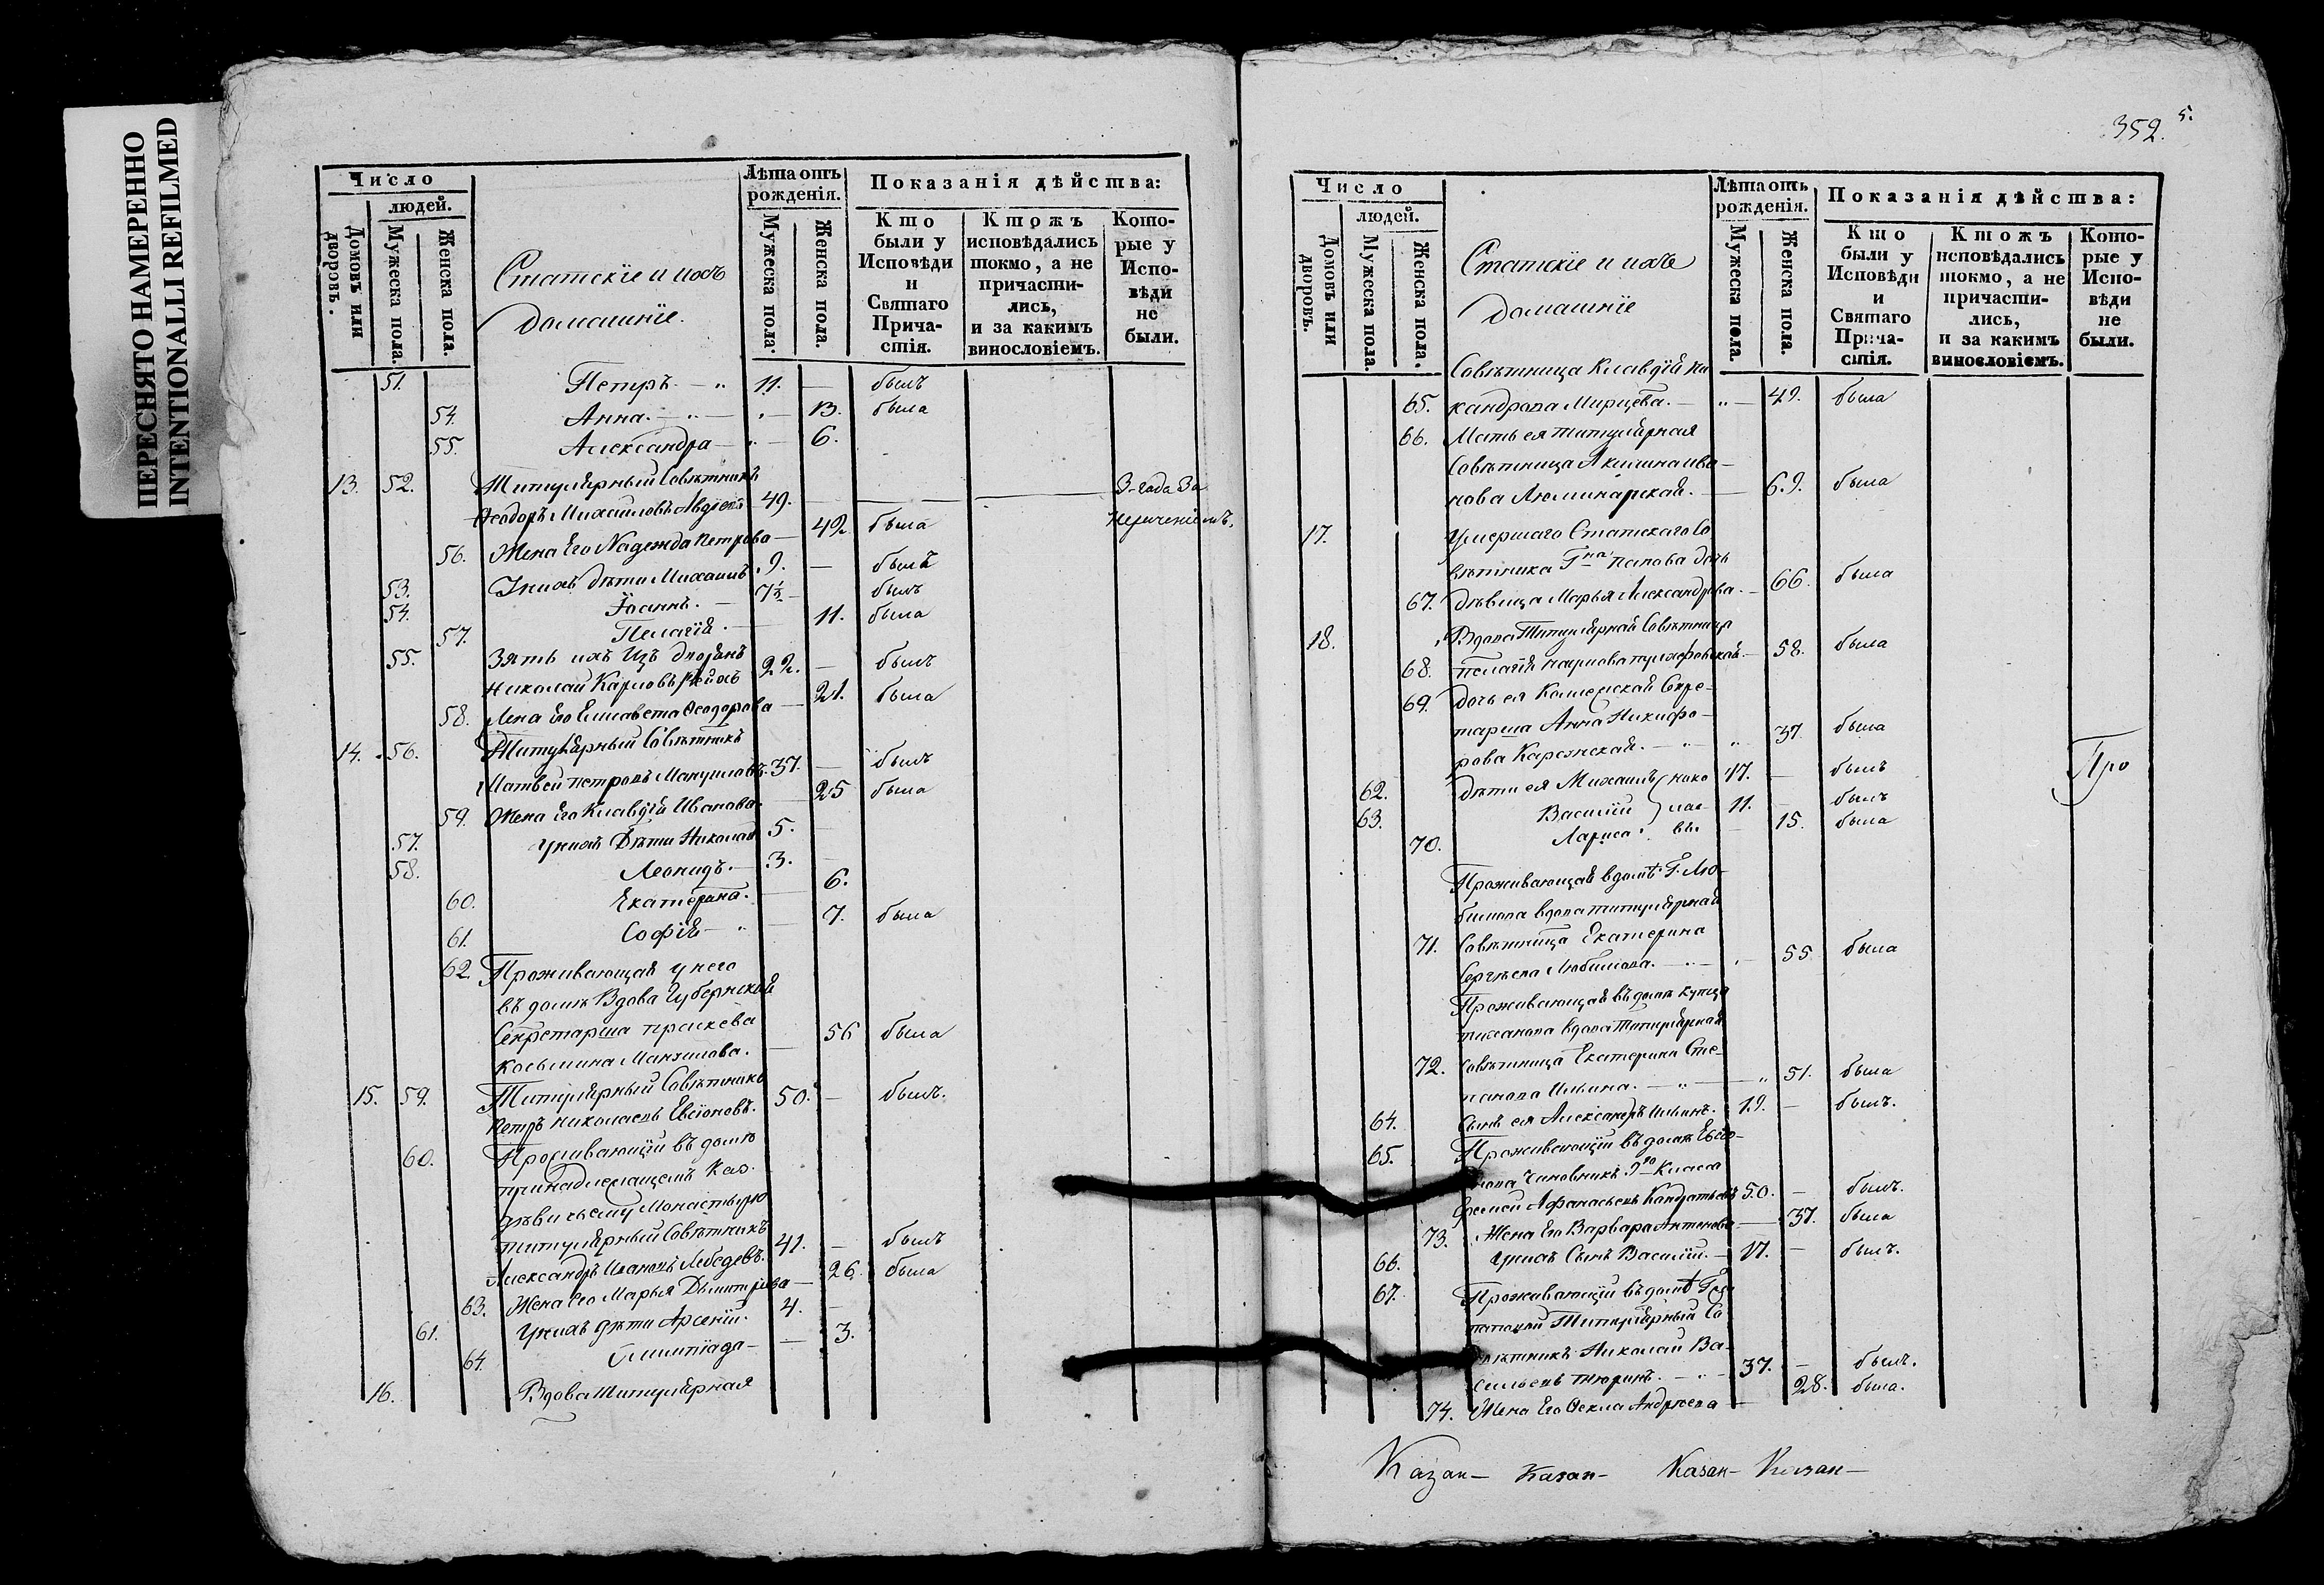 ПЕРЕСНЯТО НАМЕРЕННО
INTENTIONALLI REFILMED
Число
людей.
Домовъ или дворовъ.
Мужеска пола.
Женска пола.
Статскіе и ихъ
домашніе.
Лѣта отъ
рожденія.
Мужеска пола.
Женска пола.
Показанія дѣйства:
Кто были у Исповѣди и Святаго Причастія.
Ктожъ исповѣдались токмо, а не причастились, и за какимъ винословіемъ.
Которые у Исповѣди не были.
51. Петръ. — „ 11. — былъ
54. Анна. — „ — 13. была
55. Александра — „ — 6.
13. 52. Титулярный Совѣтникъ
Ѳеодоръ Михаиловъ 49. — 3-года За
Нераченіемъ.
56. Жена Его Надежда Петрова — 42 была
53. У нихъ дѣти Михаилъ 9. — былъ
54. Іоаннъ. — 7½ — былъ
57. Пелагія. — 11. была
55. Зять ихъ Изъ дворянъ
Николай Карловъ 22. — былъ
58. Жена Его Елисавета Ѳеодорова — 21. была
14. 56. Титулярный Совѣтникъ
Матвей Петровъ 37. — былъ
59. Жена Его Клавдія Иванова. 25 была
57. У нихъ Дѣти Николай 5. —
58. Леонидъ. — 3. —
60. Екатерина. — 6.
61. Софія — „ — 7. была
62. Проживающая у него
въ домѣ Вдова Губернская
Секретарша Праскева
Косьмина — 56 была
15. 59. Титулярный Совѣтникъ
Петръ Николаевъ Евсіоновъ. 50. — былъ.
60. Проживающій въ домѣ
принадлежащемъ Каз.
дѣвичьему Монастырю
титулярный Совѣтникъ
Александръ Ивановъ Лебедевъ. 41. — былъ
63. Жена Его Марья Димитріева — 26. была
61. У нихъ дѣти Арсеній. 4. —
64. Олимпіада — 3.
16. Вдова Титулярная
352. 5.
Число
людей.
Домовъ или дворовъ.
Мужеска пола.
Женска пола.
Статскіе и ихъ
домашніе
Лѣта отъ
рожденія.
Мужеска пола.
Женска пола.
Показанія дѣйства:
Кто были у Исповѣди и Святаго Причастія.
Ктожъ исповѣдались токмо, а не причастились, и за какимъ винословіемъ.
Которые у Исповѣди не были.
Совѣтница Клавдія Ни
65. кандрова — „ — 42. была
66. Мать ея титулярная
Совѣтница Акилина Ива-
нова — 69. была
17. Умершаго Статскаго Со
вѣтника Г-на Попова дочь
67. дѣвица Марья Александрова. — 66. была
18. Вдова Титулярная Совѣтница
68. Пелагія — 58. была
69. дочь ея Колежская Секре-
тарша Анна Никифо-
рова — „ — „ 37 была
62. дѣти ея Михаилъ 17. — былъ
Про
63. Василій 11. — былъ
70. Лариса. 15. была
Проживающая в домѣ Г. Лю-
бимова вдова титулярная
71. Совѣтница Екатерина
Сергѣева Любимова. — „ — 55 была
Проживающая въ домѣ купца
Тиханова вдова Титулярная
72. Совѣтница Екатерина Сте-
панова Ильина. — „ — „ 51. была
64. Сынъ ея Александръ Ильинъ. 19. — былъ.
65. Проживающій въ домѣ Евсіо-
нова Чиновникъ 9го Класса
Афанасьевъ Кондратьевъ 50. — былъ.
73. Жена Его Варвара Антонова — 37. была
66. У нихъ Сынъ Василій. — 17. — былъ.
67. Проживающій въ домѣ
Титулярный Со
вѣтникъ Николай Ва-
сильевъ Тюринъ. — „ — 37. — былъ.
74. Жена Его Ѳекла Андреева — 28. была.
Казан- Казан- Казан- Казан-